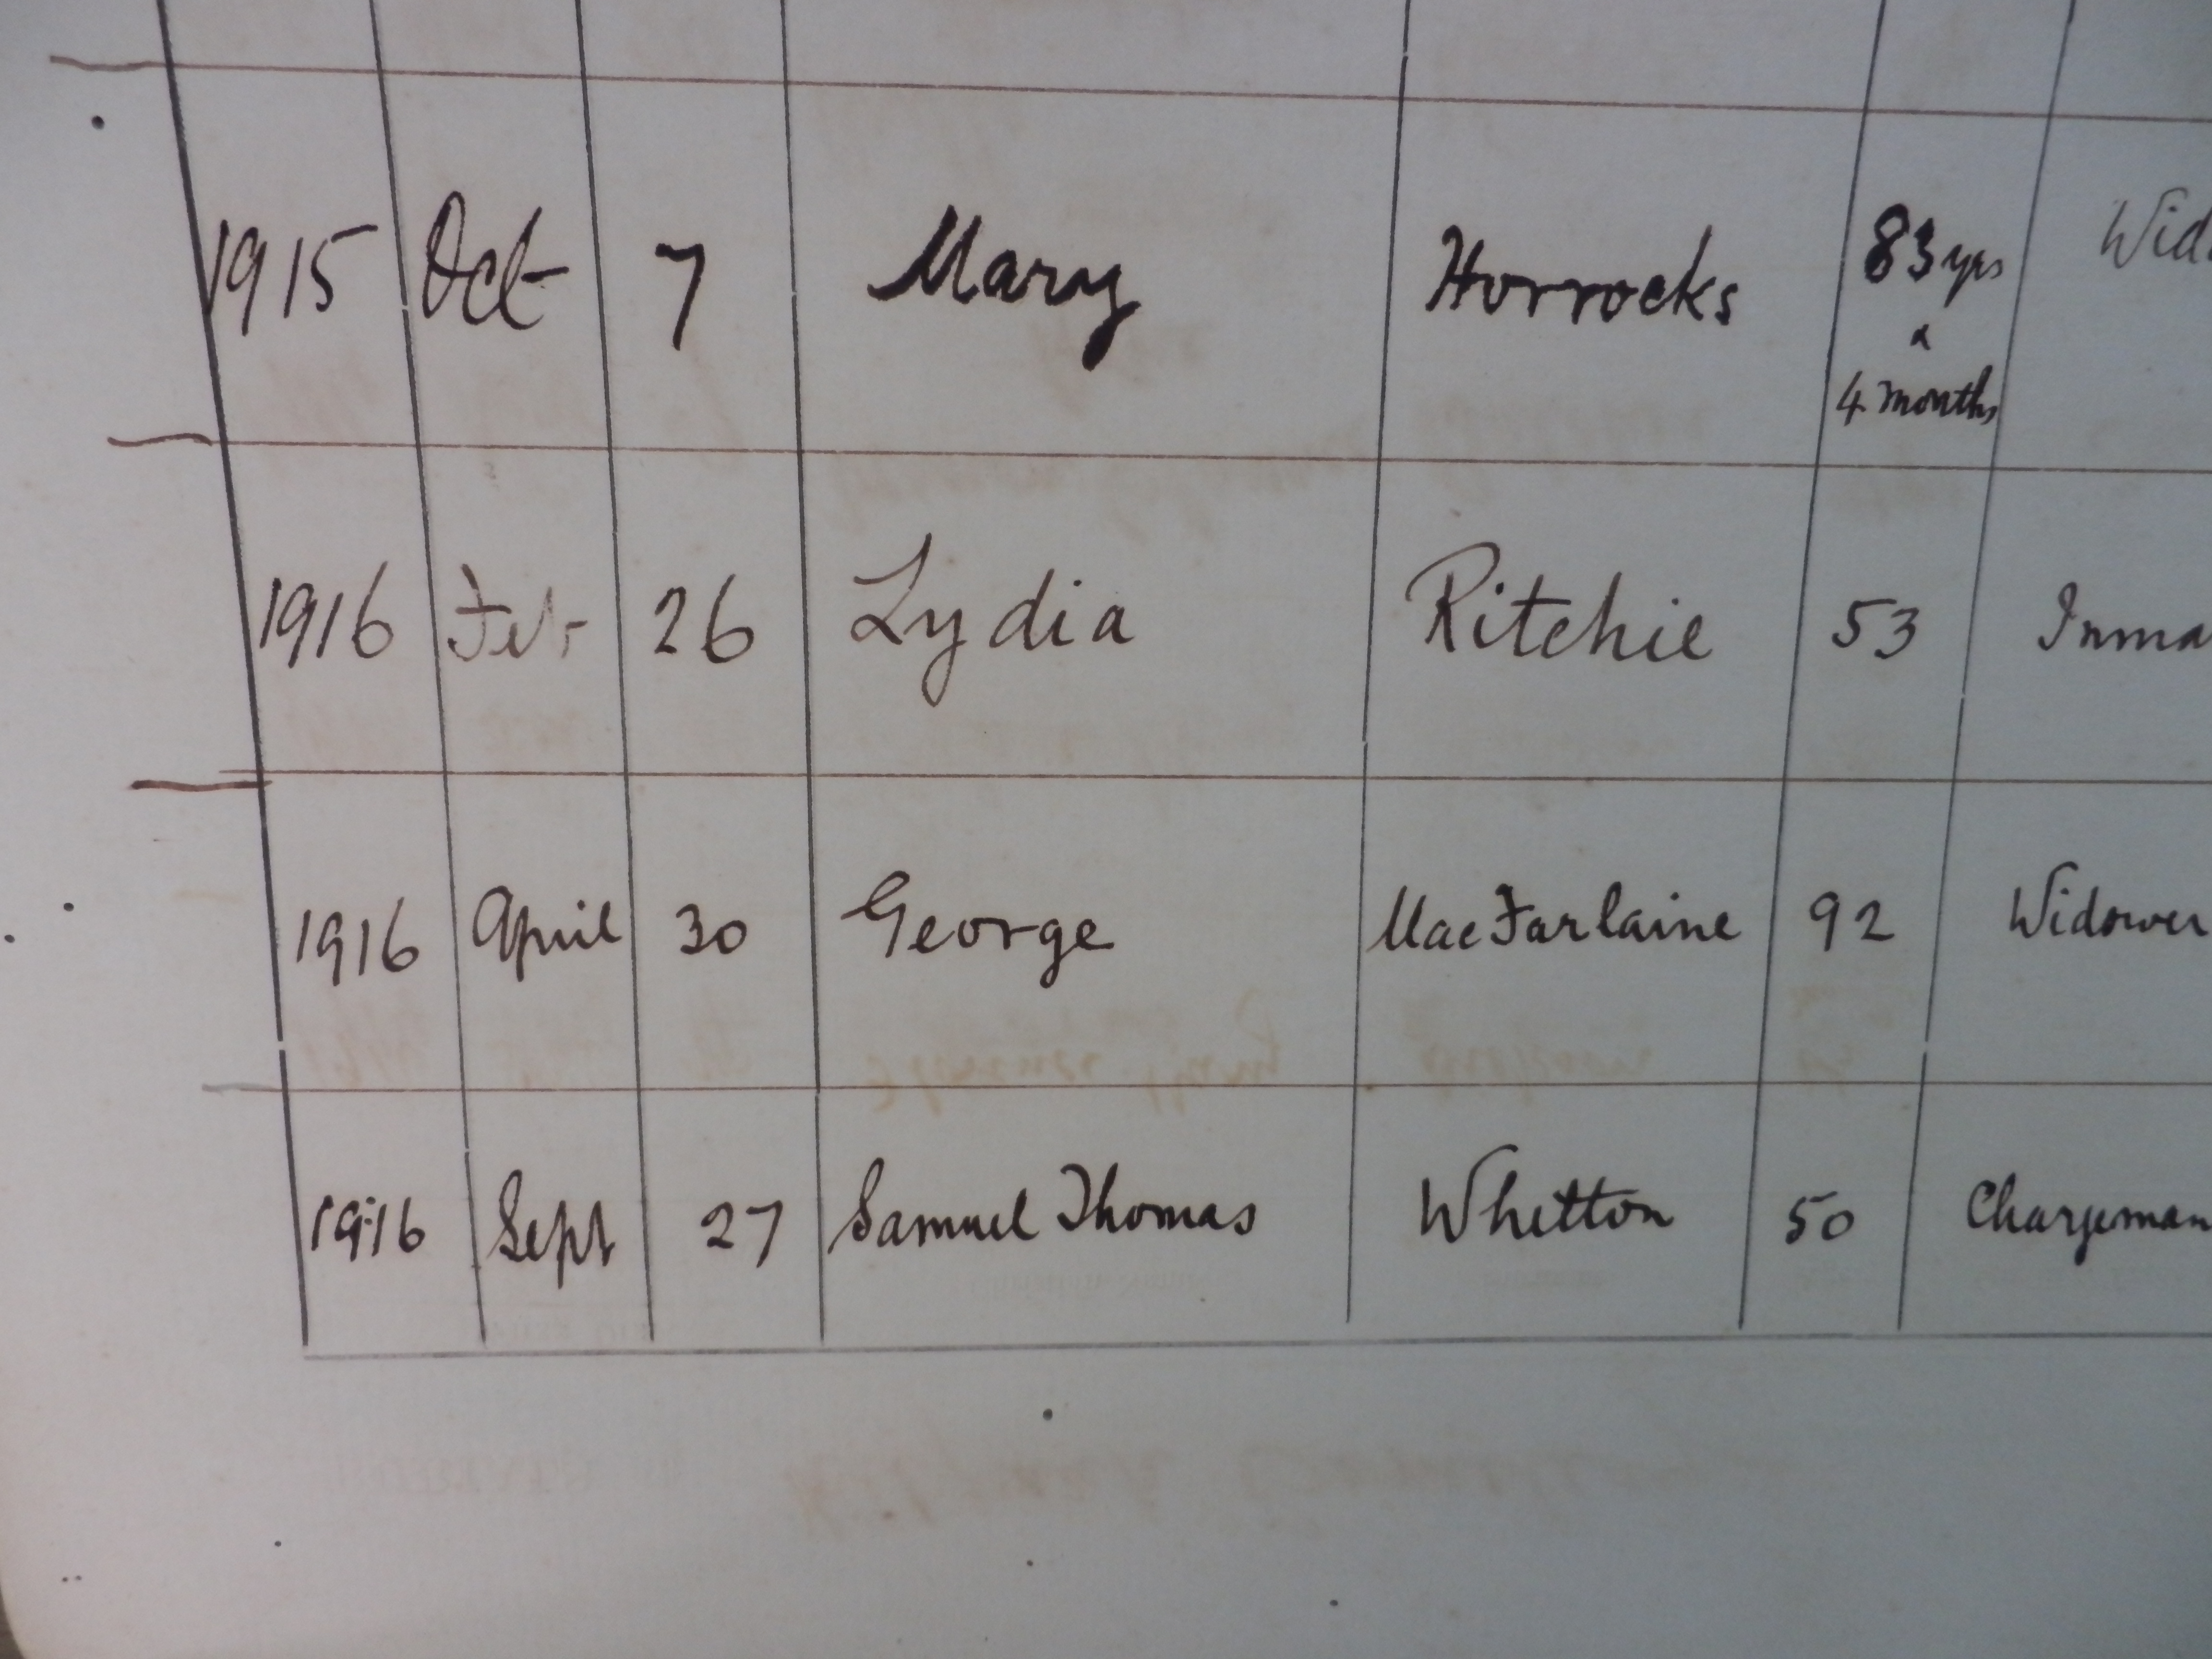 1915 Oct 7 Mary Horrocks 83 yrs Wid
&
4 months
1916 Feb 26 Lydia Ritchie 53 Inma
1916 April 30 George MacFarlaine 92 Widower
1916 Sept 27 Samuel Thomas Whetton 50 Chargeman